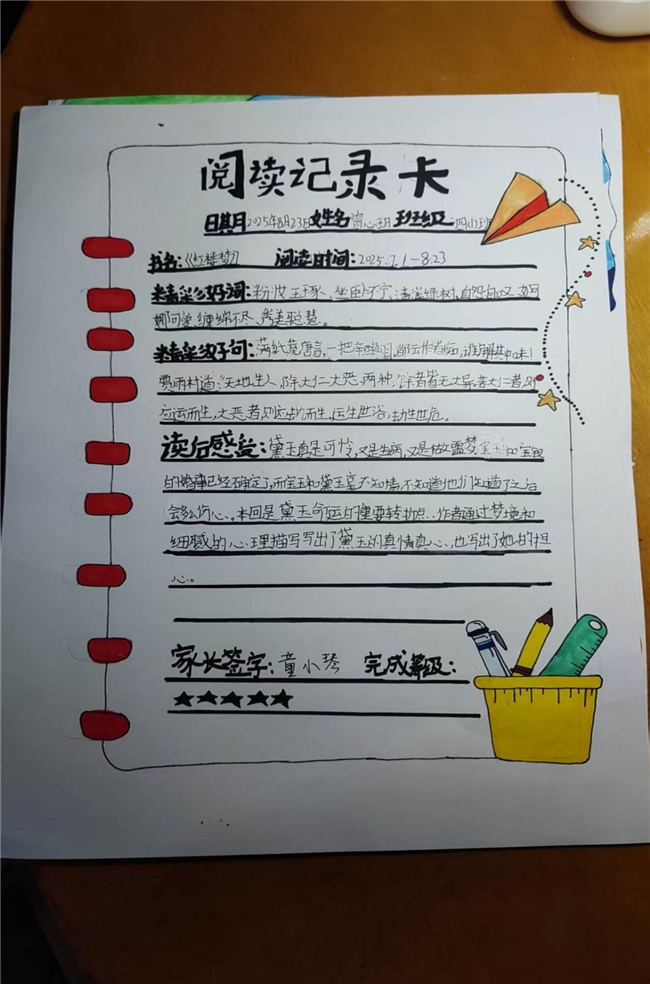 阅读记录卡
日期2025年8月23日 姓名 曾心玥 班级 四(1)班
书名:《红楼梦》 阅读时间:2025.7.1-8.23
精彩好词:粉妆玉琢、坐卧不宁、清堂绿树、自怨自叹、婀
娜可爱、缠绵不尽、秀美聪慧。
精彩好句:满纸荒唐言,一把辛酸泪!都云作者痴,谁解其中味!
贾雨村道:“天地生人,除大仁大恶,两种,余者皆无大异,若大仁者,则
应运而生,大恶者,则应劫而生,运生世治,劫生世危。
读后感受:黛玉真是可怜,又是生病,又是做噩梦,宝玉和宝钗
的婚事已经确定了,而宝玉和黛玉毫不知情,不知道他们知道了之后
会多么伤心。本回是黛玉命运的重要转折点,作者通过梦境和
细腻的心理描写写出了黛玉的真情真心,也写出了她的担
心。
家长签字:童小琴 完成等级:
★★★★★